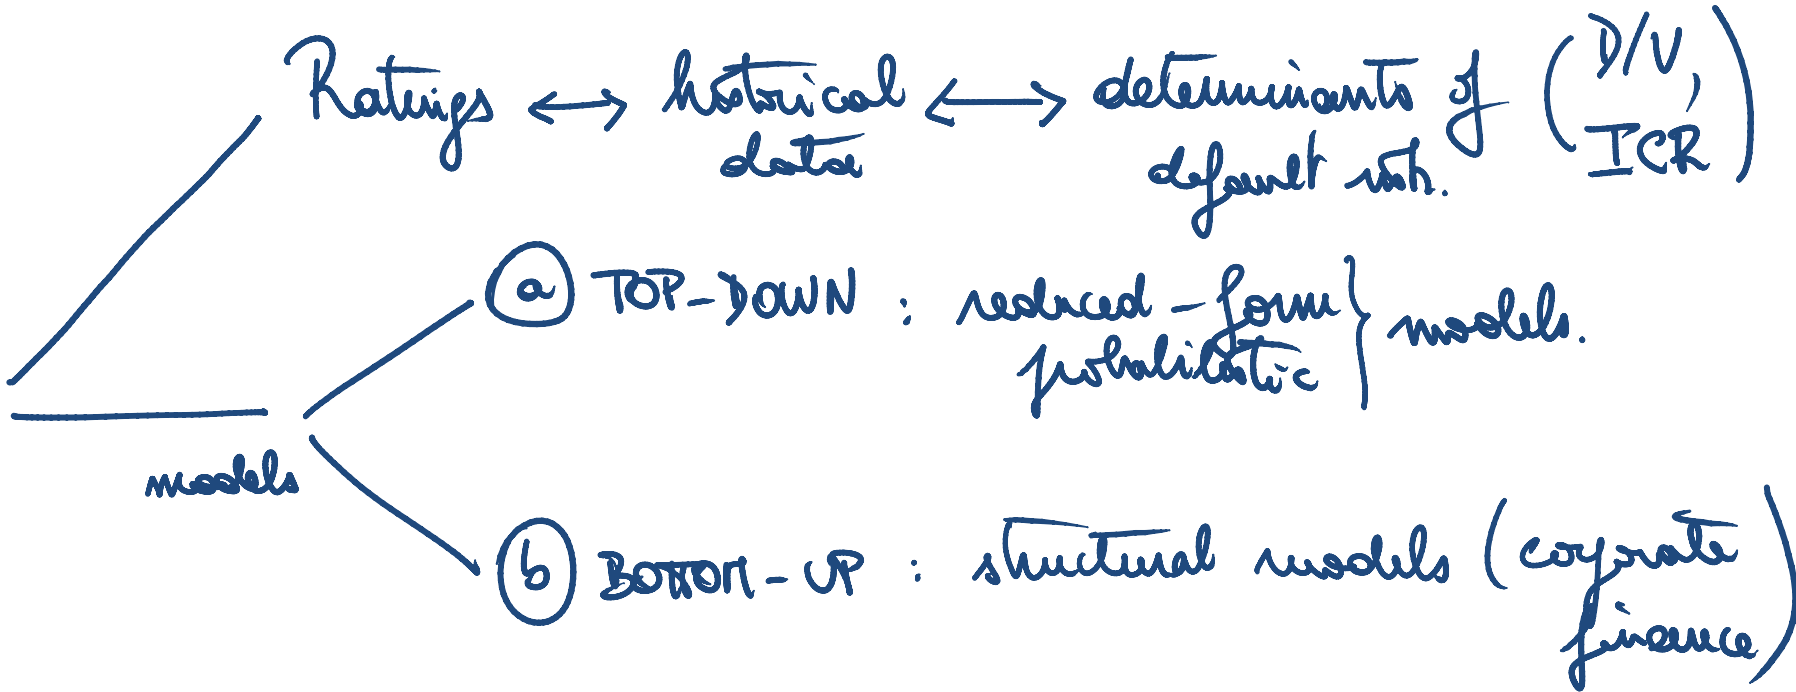 Ratings ↔ historical data ↔ determinants of default risk. (D/V, ICR)
a TOP-DOWN : reduced-form probabilistic } models.
models
b BOTTOM-UP : structural models (corporate finance)